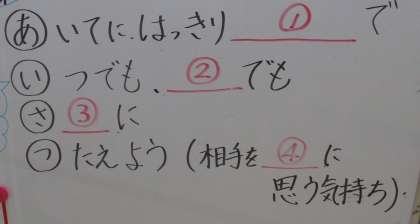 あいてに、はっきり ① で
いつでも、②でも
さ ③ に
つたえよう（相手を ④ に
思う気持ち）.